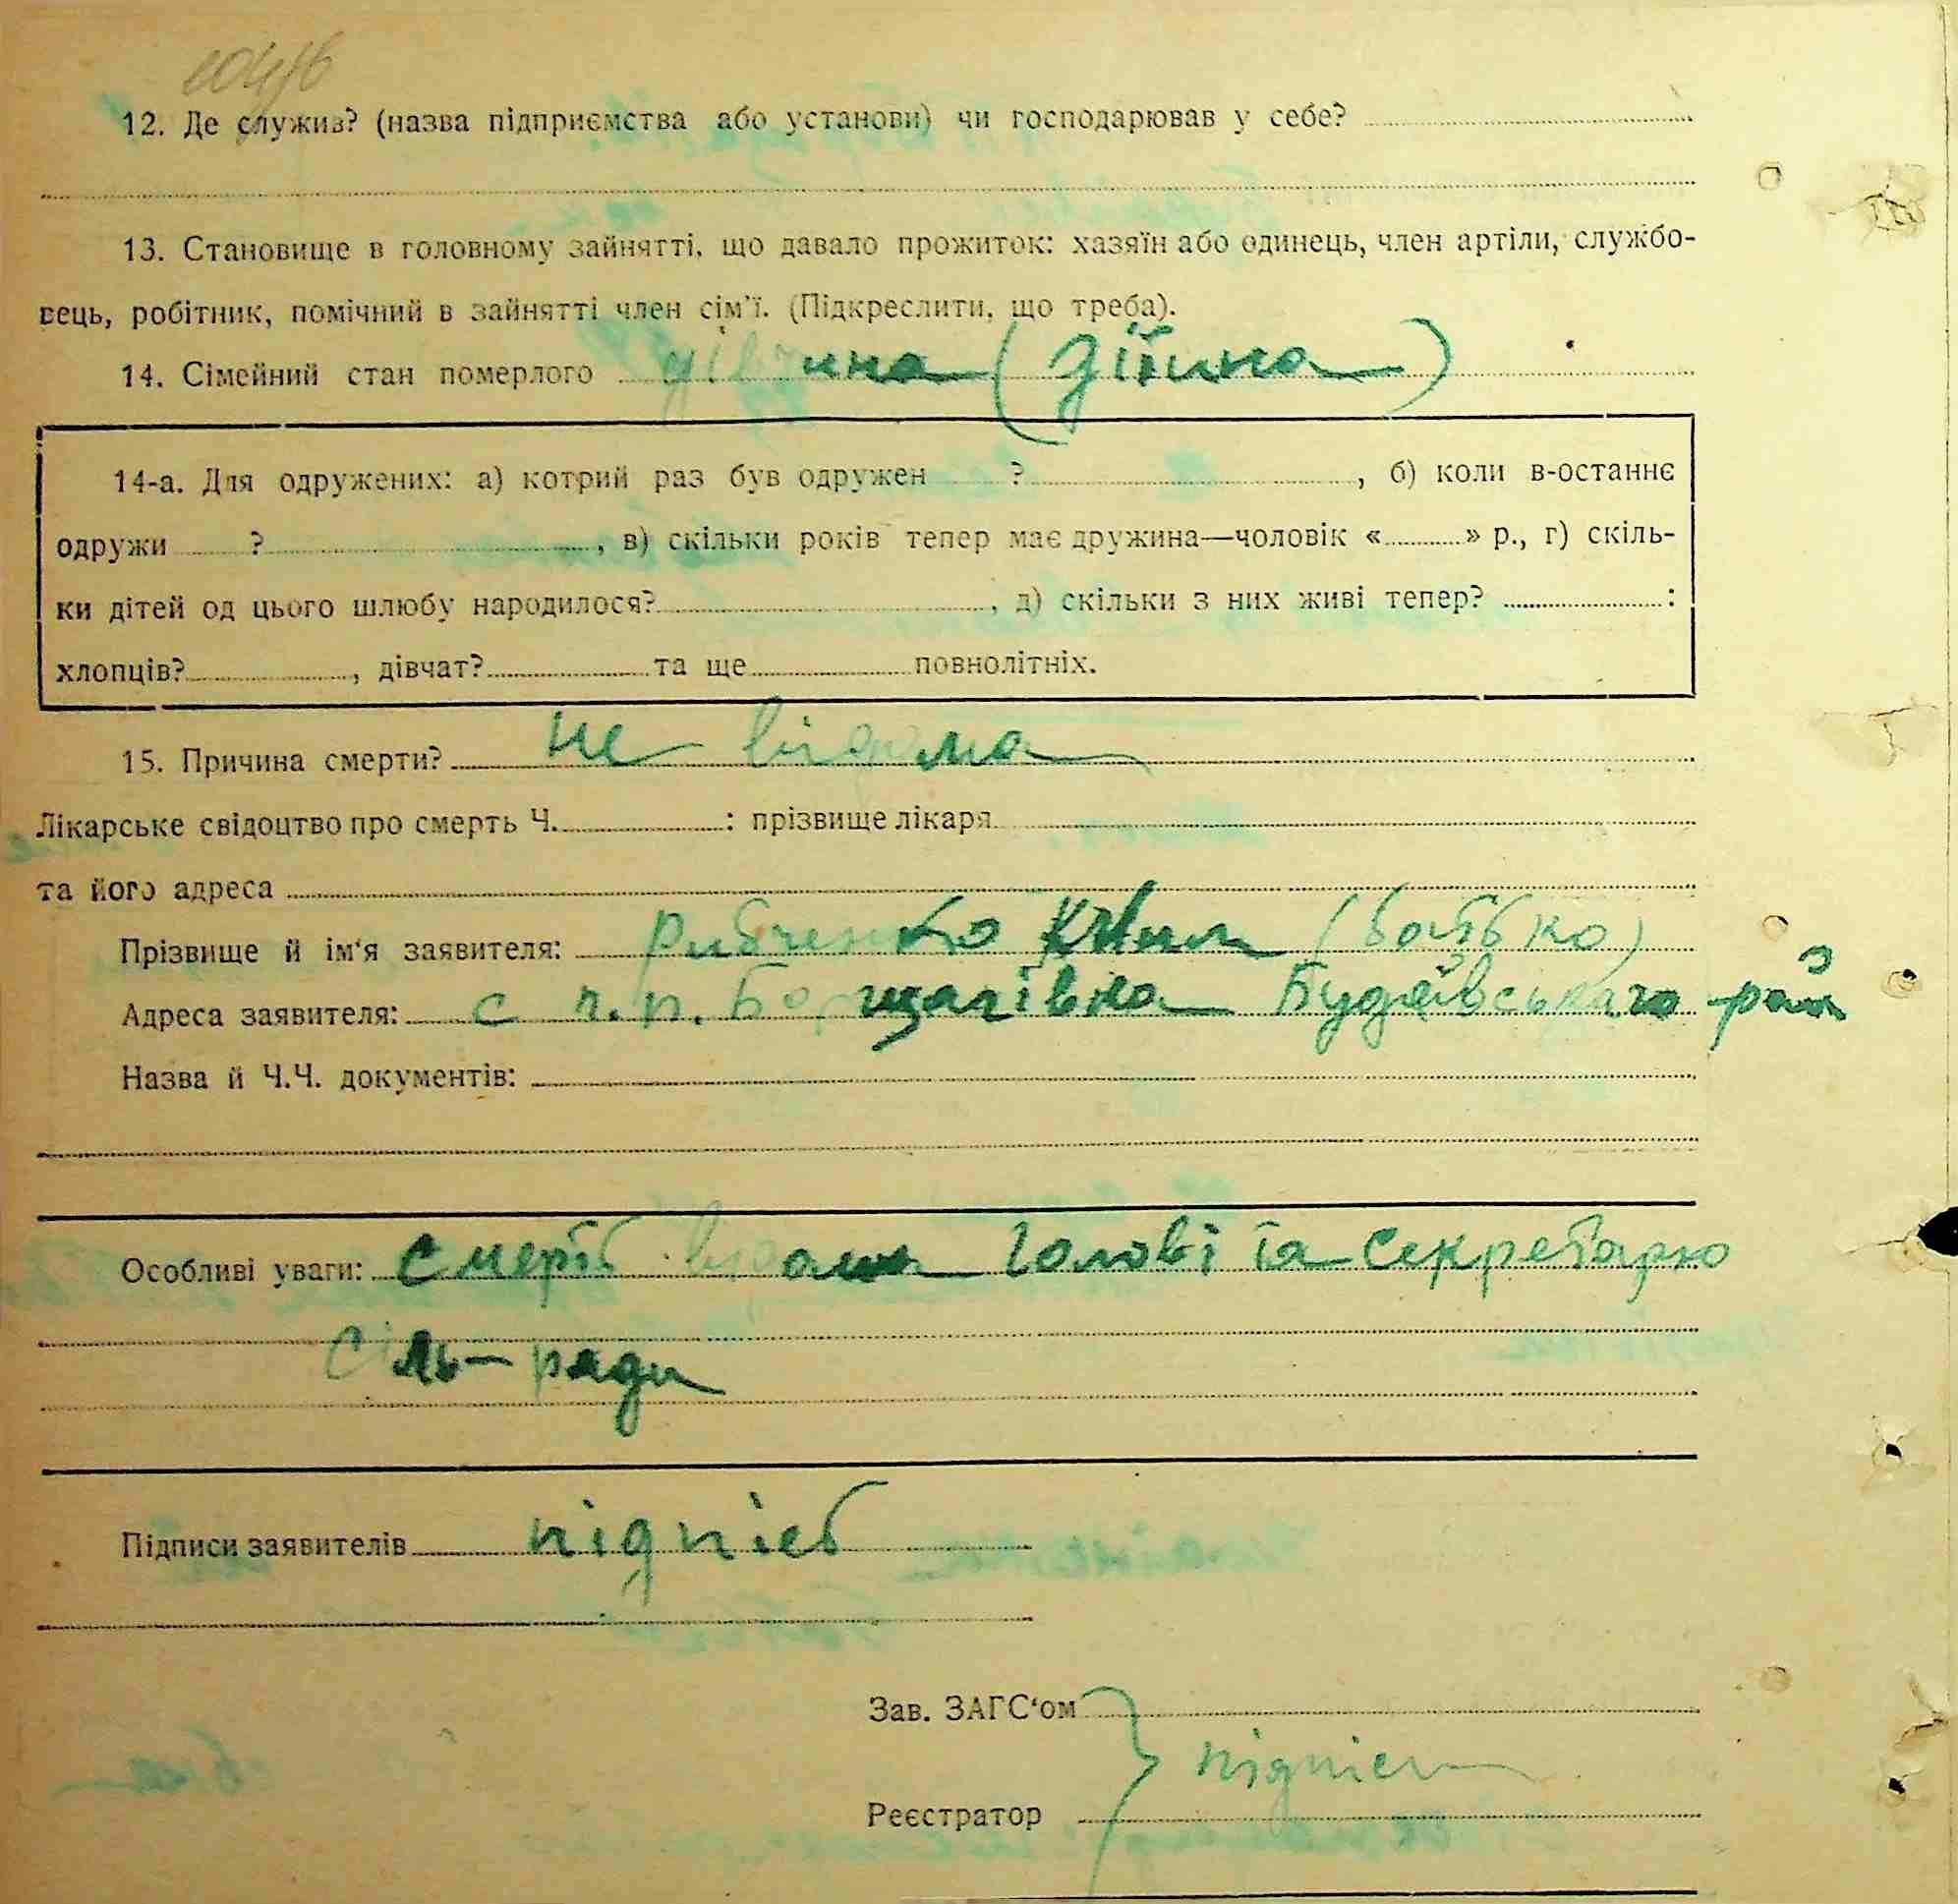 12. Де служив? (назва підприємства або установи) чи господарював у себе?
13. Становище в головному зайнятті, що давало прожиток: хазяїн або одинець, член артіли, службо-
вець, робітник, помічний в зайнятті член сім'ї. (Підкреслити, що треба).
14. Сімейний стан померлого дівчина (дітина)
14-а. Для одружених: а) котрий раз був одружен ? , б) коли в-останнє
одружи ? , в) скільки років тепер має дружина—чоловік « » р., г) скіль-
ки дітей од цього шлюбу народилося? , д) скільки з них живі тепер? :
хлопців? , дівчат? та ще повнолітніх.
15. Причина смерти? не відома
Лікарське свідоцтво про смерть Ч. : прізвище лікаря
та його адреса
Прізвище й ім'я заявителя: Рибченко (батько)
Адреса заявителя: с п. п. Борщагівка Будаївського рай
Назва й Ч.Ч. документів:
Особливі уваги: Смерть відома Голові та Секретарю
Сіль-ради
Підписи заявителів підпісь
Зав. ЗАГС'ом
підпіси
Реєстратор